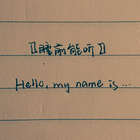 〖睡前能听〗
Hello, my name is ...